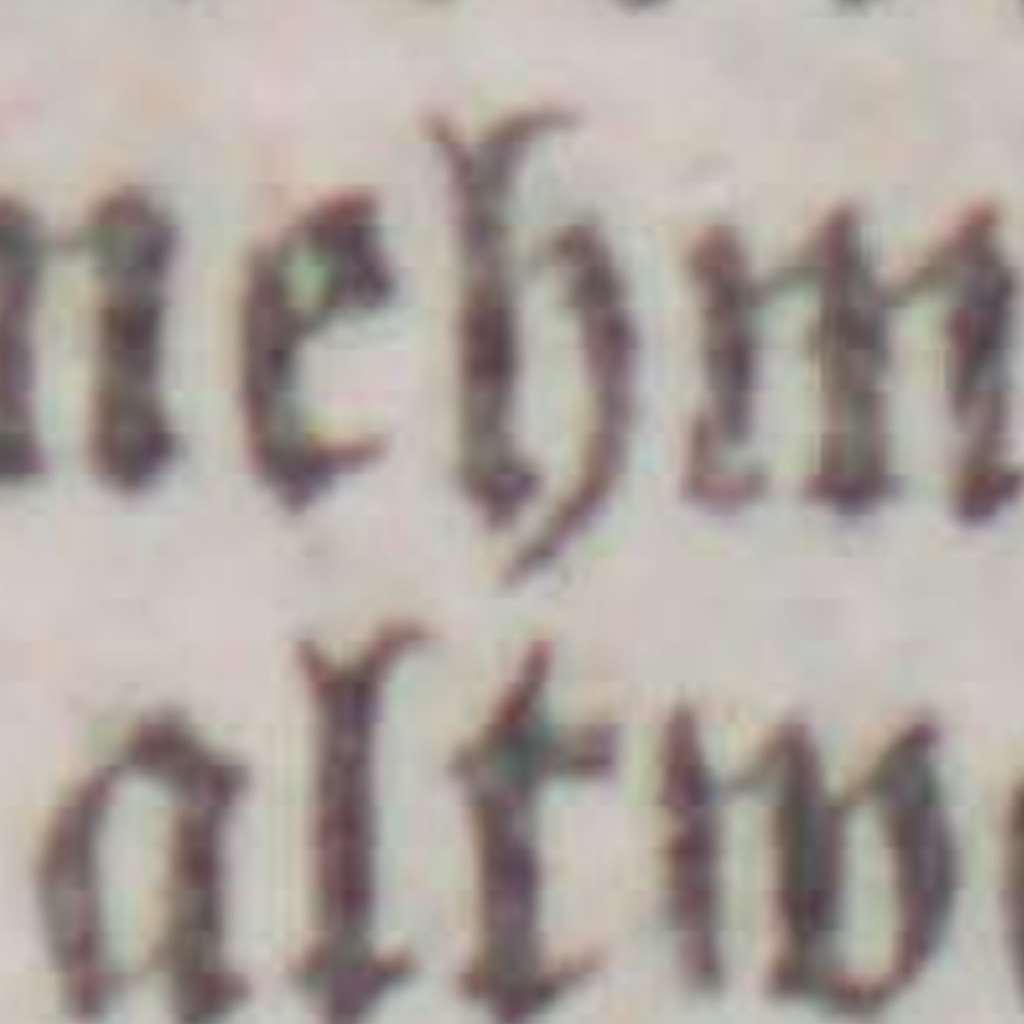 nehm
altw